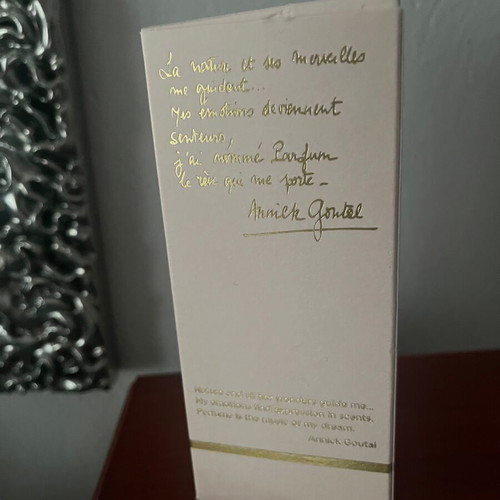 La nature et ses merveilles
me guident...
Mes émotions deviennent
senteurs,
j'ai nommé Parfum
le rêve qui me porte_
Annick Goutal
Nature and all her wonders guide me...
My emotions find expression in scents.
Perfume is the music of my dream.
Annick Goutal